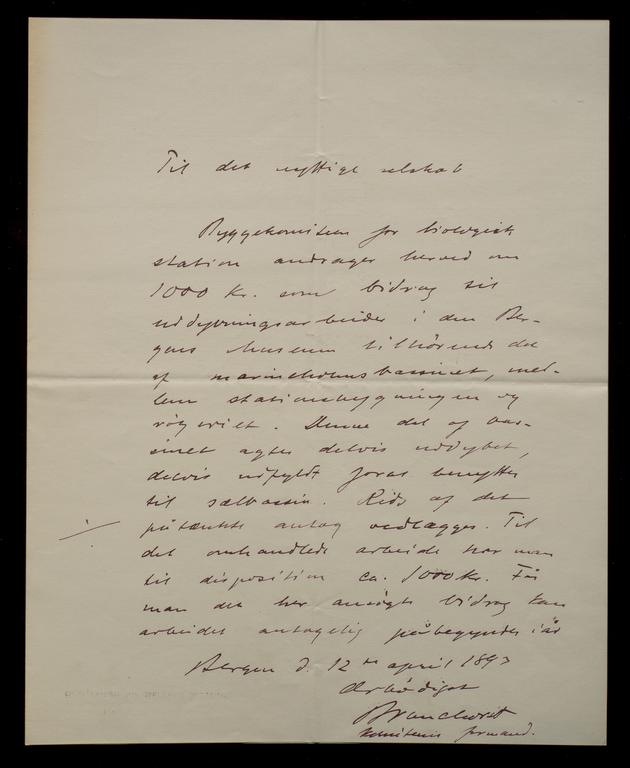 Til det nyttige selskab
Byggekomiteen for biologisk
station andrager herved om
1000 kr. som bidrag til
uddypningsarbeider i den Ber-
gens Museum tilhörende del
af marineholmsbassinet, mel-
lem stationsbygningen og
Denne del af bas-
sinet agtes delvis uddybet,
delvis udfyldt forat benyttes
til sælbassin. Rids af det
påtænkte vedlægges. Til
det omhandlede arbeide har man
til disposition ca. 1000 kr. Får
man det her ansögte bidrag kan
arbeidet antagelig påbegyndes i år
Bergen d. 12te april 1893
Ærbödigst
J Brunchorst
komiteens formand.